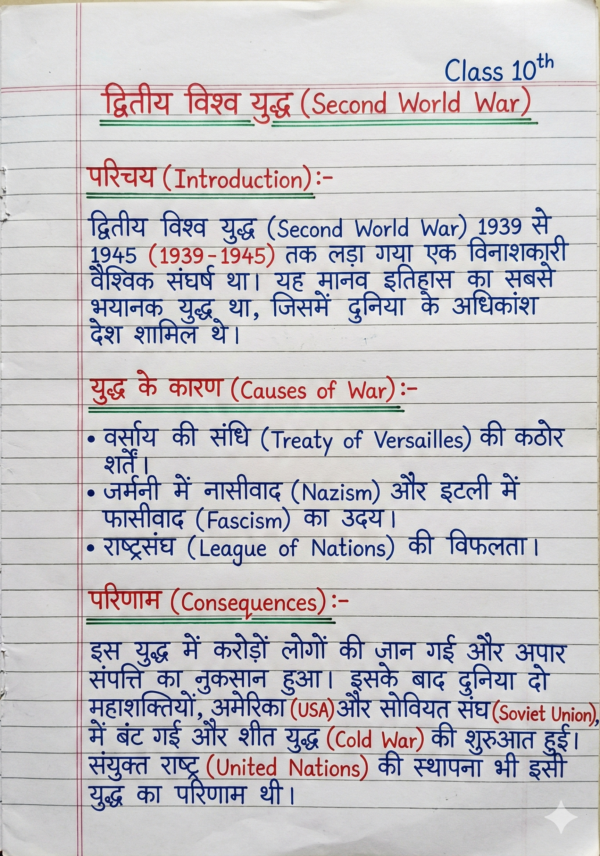 Class 10th
द्वितीय विश्व युद्ध (Second World War)
परिचय (Introduction):-
द्वितीय विश्व युद्ध (Second World War) 1939 से
1945 (1939-1945) तक लड़ा गया एक विनाशकारी
वैश्विक संघर्ष था। यह मानव इतिहास का सबसे
भयानक युद्ध था, जिसमें दुनिया के अधिकांश
देश शामिल थे।
युद्ध के कारण (Causes of War):-
• वर्साय की संधि (Treaty of Versailles) की कठोर
शर्तें।
• जर्मनी में नासीवाद (Nazism) और इटली में
फासीवाद (Fascism) का उदय।
• राष्ट्रसंघ (League of Nations) की विफलता।
परिणाम (Consequences):-
इस युद्ध में करोड़ों लोगों की जान गई और अपार
संपत्ति का नुकसान हुआ। इसके बाद दुनिया दो
महाशक्तियों, अमेरिका (USA) और सोवियत संघ (Soviet Union),
में बंट गई और शीत युद्ध (Cold War) की शुरुआत हुई।
संयुक्त राष्ट्र (United Nations) की स्थापना भी इसी
युद्ध का परिणाम थी।